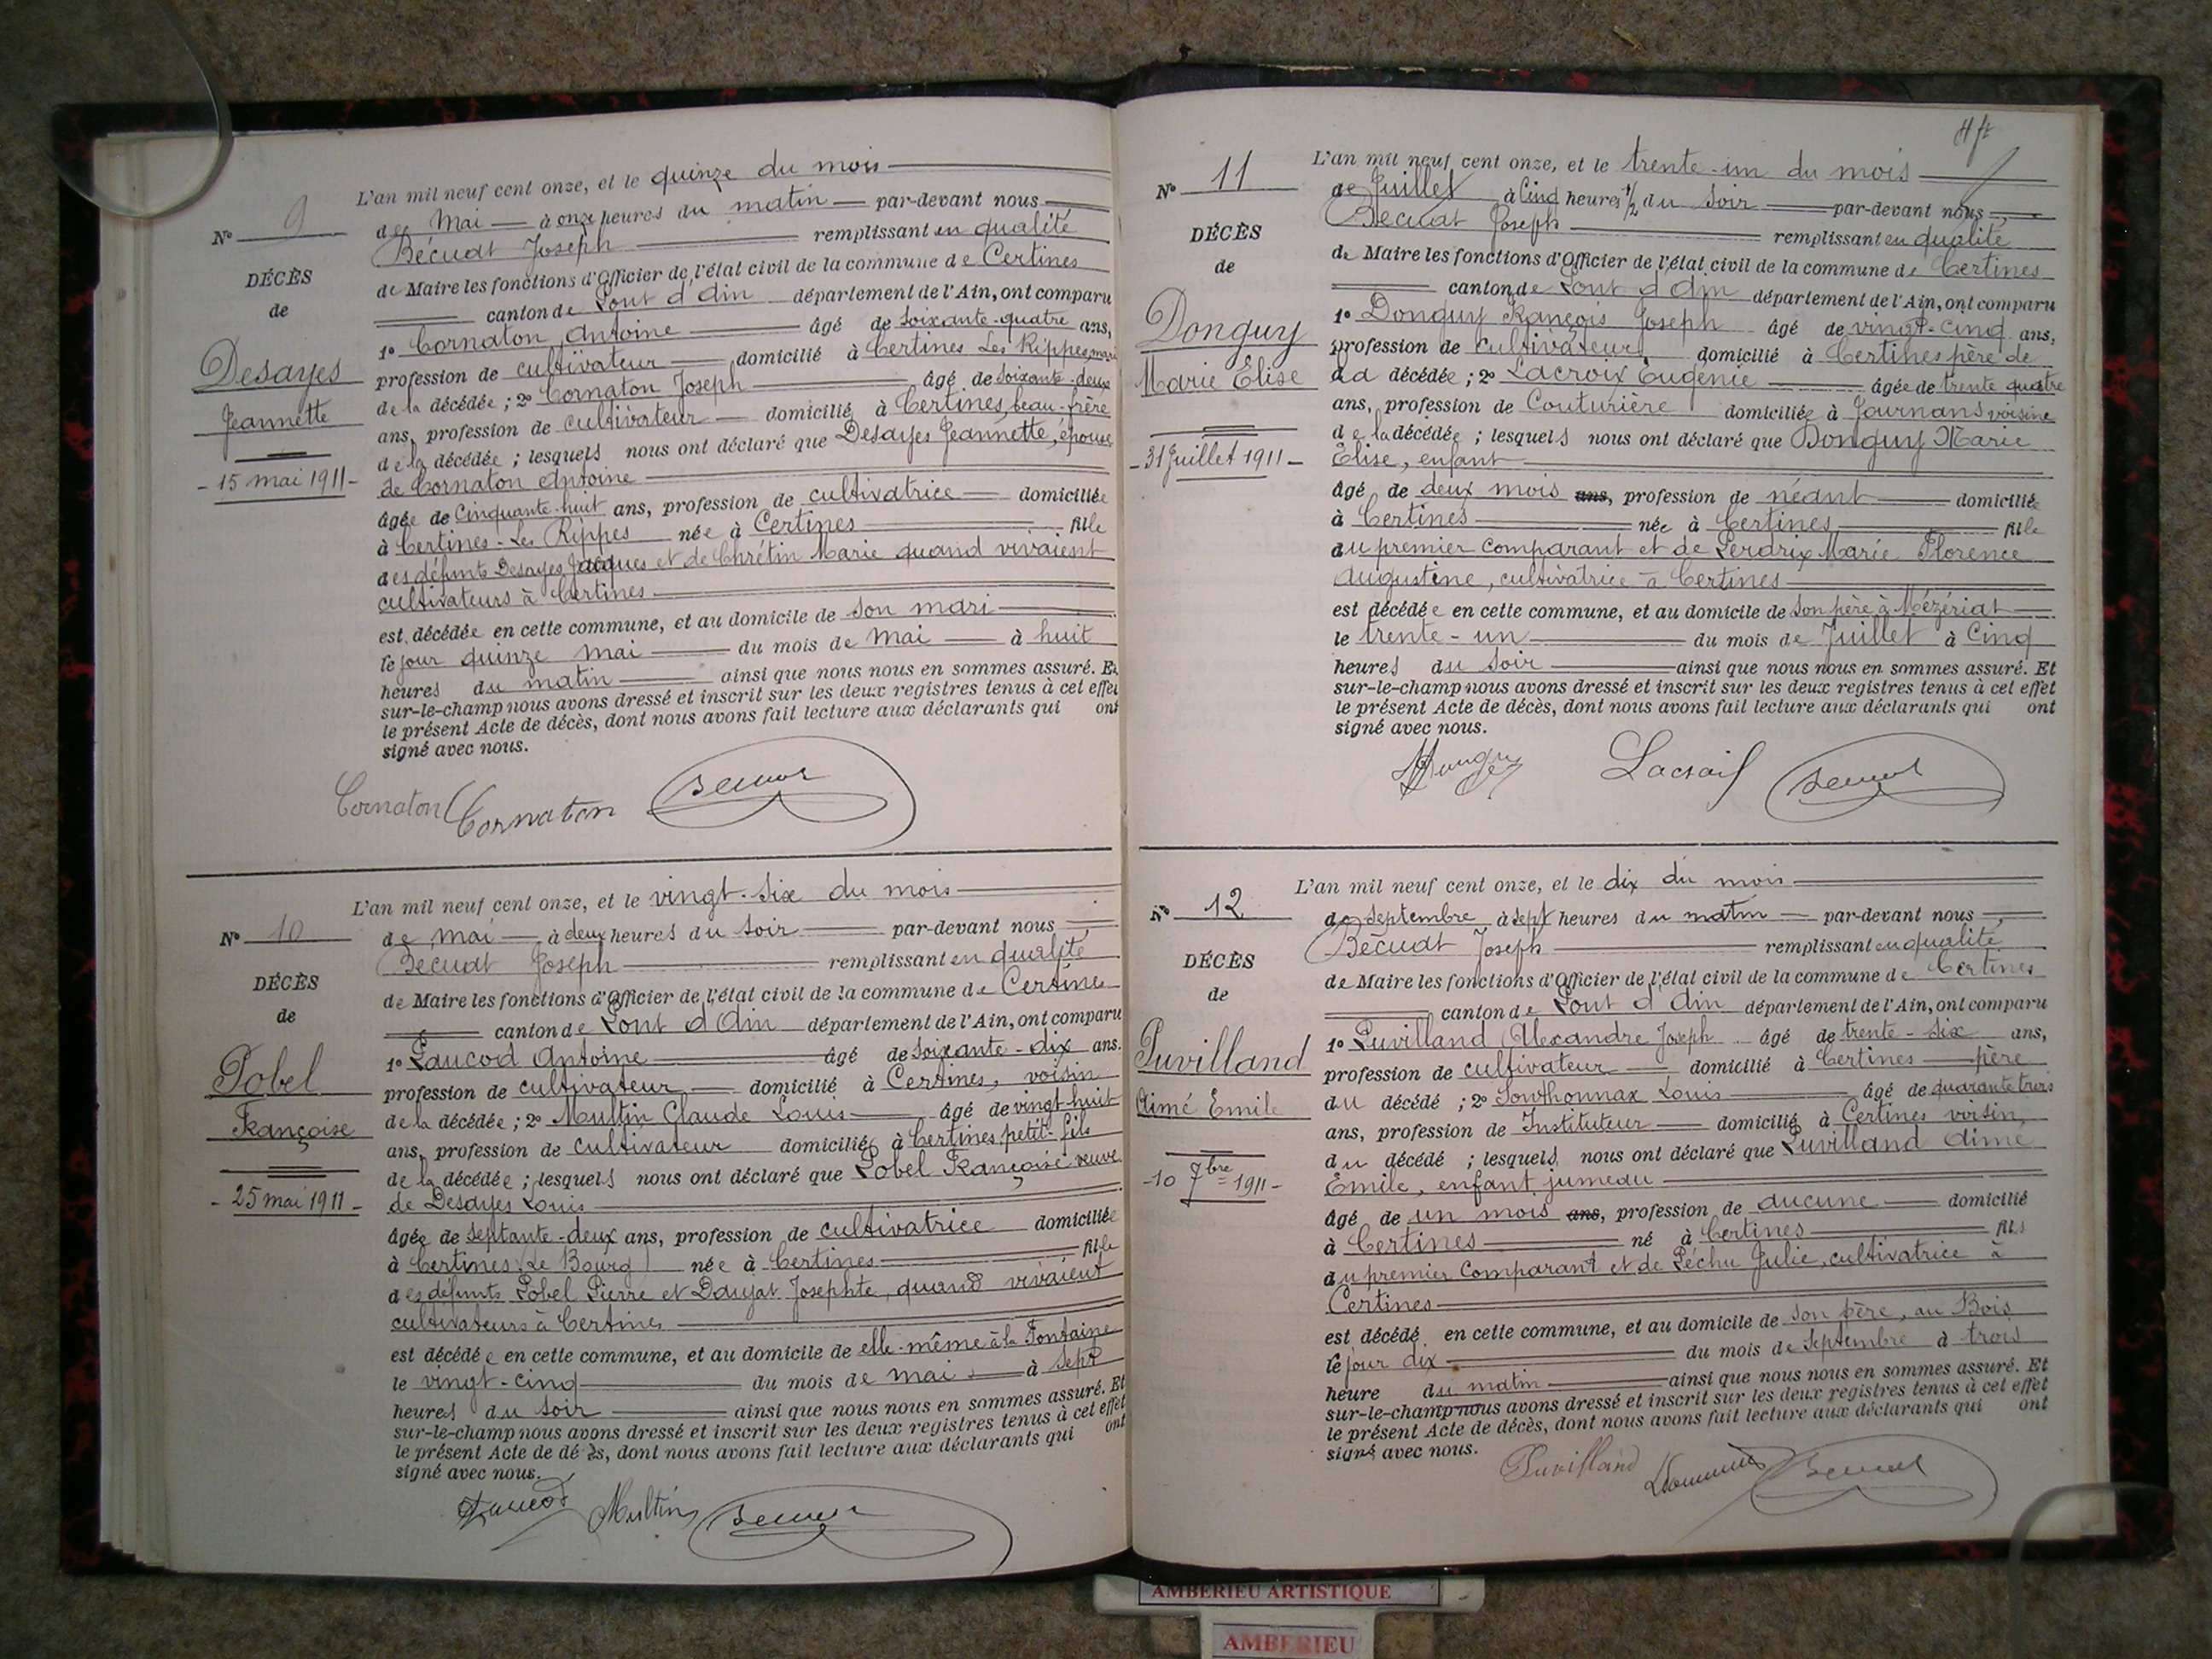 L'an mil neuf cent onze, et le quinze du mois
N° 9
de Mai à onze heures du matin par-devant nous
Bécuat Joseph remplissant en qualité
DÉCÈS
de Maire les fonctions d'Officier de l'état civil de la commune de Certines
de
canton de Pont d'Ain département de l'Ain, ont comparu
1° Cornaton Antoine âgé de soixante-quatre ans,
Desayes
profession de cultivateur domicilié à Certines Les Rippes, mari
de la décédée ; 2° Cornaton Joseph âgé de soixante-deux
Jeannette
ans, profession de cultivateur domicilié à Certines, beau-frère
de la décédée ; lesquels nous ont déclaré que Desayes Jeannette, épouse
- 15 mai 1911 -
de Cornaton Antoine
âgée de cinquante-huit ans, profession de cultivatrice domiciliée
à Certines - Les Rippes née à Certines fille
des défunts Desayes Jacques et de Chrétin Marie quand vivaient
cultivateurs à Certines
est décédée en cette commune, et au domicile de son mari
le jour quinze mai du mois de Mai à huit
heures du matin ainsi que nous nous en sommes assuré. Et
sur-le-champ nous avons dressé et inscrit sur les deux registres tenus à cet effet
le présent Acte de décès, dont nous avons fait lecture aux déclarants qui ont
signé avec nous.
Cornaton Cornaton Becuat
L'an mil neuf cent onze, et le vingt-six du mois
N° 10
de mai à deux heures du soir par-devant nous
Bécuat Joseph remplissant en qualité
DÉCÈS
de Maire les fonctions d'Officier de l'état civil de la commune de Certines
de
canton de Pont d'Ain département de l'Ain, ont comparu
1° Paucod Antoine âgé de soixante-dix ans.
Pobel
profession de cultivateur domicilié à Certines, voisin
de la décédée ; 2° Multin Claude Louis âgé de vingt huit
Françoise
ans, profession de cultivateur domiciliés à Certines petit-fils
de la décédée ; lesquels nous ont déclaré que Pobel Françoise veuve
- 25 mai 1911 -
de Desayes Louis
âgée de septante-deux ans, profession de cultivatrice domiciliée
à Certines (Le Bourg) née à Certines fille
des défunts Pobel Pierre et Daujat Josephte, quand vivaient
cultivateurs à Certines
est décédée en cette commune, et au domicile de elle-même à la Fontaine
le vingt-cinq du mois de mai à sept
heures du soir ainsi que nous nous en sommes assuré. Et
sur-le-champ nous avons dressé et inscrit sur les deux registres tenus à cet effet
le présent Acte de dé ès, dont nous avons fait lecture aux déclarants qui ont
signé avec nous.
Paucod Multin Becuat
L'an mil neuf cent onze, et le trente-un du mois
N° 11
de Juillet à Cinq heures 1/2 du soir par-devant nous
Bécuat Joseph remplissant en qualité
DÉCÈS
de Maire les fonctions d'Officier de l'état civil de la commune de Certines
de
canton de Pont d'Ain département de l'Ain, ont comparu
1° Donguy François Joseph âgé de vingt-cinq ans,
Donguy
profession de cultivateur domicilié à Certines père de
Marie Élise
la décédée ; 2° Lacroix Eugénie âgée de trente quatre
ans, profession de Couturière domiciliée à Journans voisine
de la décédée ; lesquels nous ont déclaré que Donguy Marie
- 31 Juillet 1911 -
Élise, enfant
âgé de deux mois ans, profession de néant domiciliée
à Certines née à Certines fille
du premier comparant et de Perdrix Marie Florence
Augustine, cultivatrice à Certines
est décédée en cette commune, et au domicile de son père à Mézériat
le trente-un du mois de Juillet à Cinq
heures du soir ainsi que nous nous en sommes assuré. Et
sur-le-champ nous avons dressé et inscrit sur les deux registres tenus à cet effet
le présent Acte de décès, dont nous avons fait lecture aux déclarants qui ont
signé avec nous.
Becuat
L'an mil neuf cent onze, et le dix du mois
N° 12
de septembre à sept heures du matin par-devant nous
Bécuat Joseph remplissant en qualité
DÉCÈS
de Maire les fonctions d'Officier de l'état civil de la commune de Certines
de
canton de Pont d'Ain département de l'Ain, ont comparu
1° Puvilland Alexandre Joseph âgé de trente-six ans,
Puvilland
profession de cultivateur domicilié à Certines père
du décédé ; 2° Southonnax Louis âgé de quarante trois
Aimé Emile
ans, profession de Instituteur domiciliés à Certines voisin,
du décédé ; lesquels nous ont déclaré que Puvilland Aimé
- 10 7bre 1911 -
Emile, enfant jumeau
âgé de un mois ans, profession de aucune domicilié
à Certines né à Certines fils
du premier comparant et de Péchu Julie, cultivatrice à
Certines
est décédé en cette commune, et au domicile de son père, au Bois
le jour dix du mois de Septembre à trois
heure du matin ainsi que nous nous en sommes assuré. Et
sur-le-champ nous avons dressé et inscrit sur les deux registres tenus à cet effet
le présent Acte de décès, dont nous avons fait lecture aux déclarants qui ont
signé avec nous.
Puvilland Becuat
AMBERIEU ARTISTIQUE
AMBERIEU